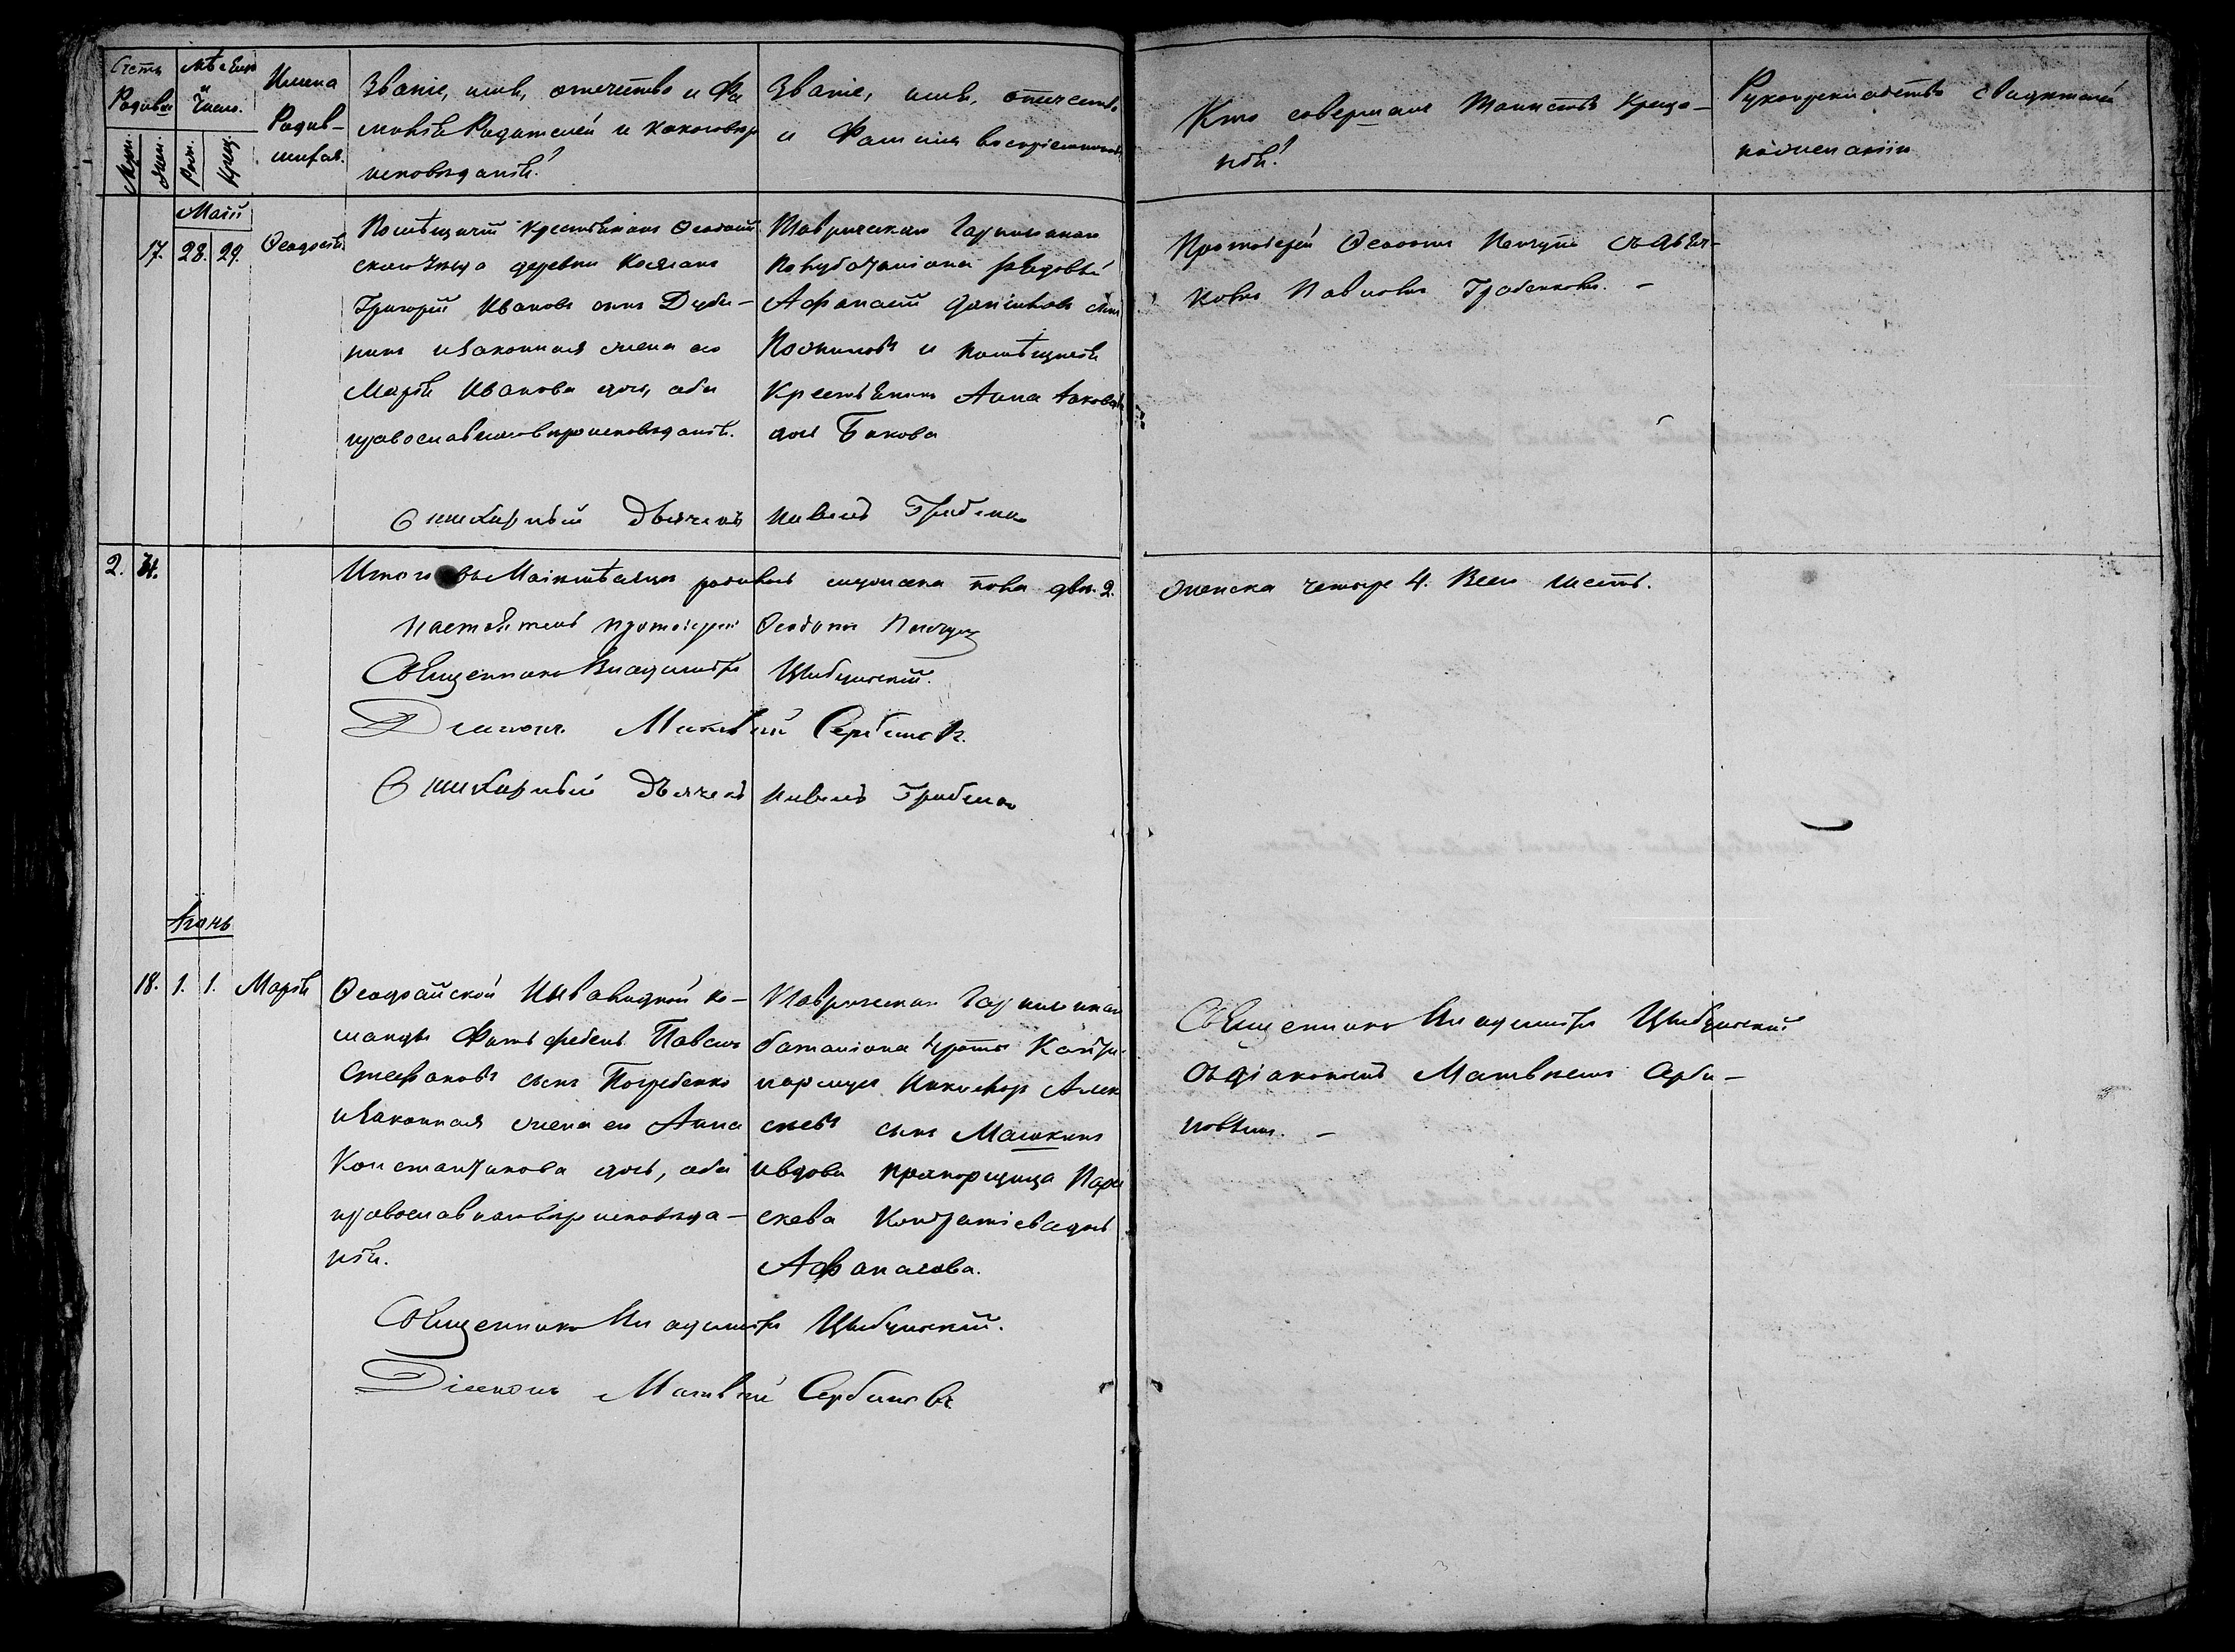 Счетъ Родивш
Муж. Жен.
Мѣсяцъ и Число.
Рож. Крещ.
Имена Родив-
шихся.
Званіе, имя, отчество и Фа
милія Родителей и какого вѣр
исповѣданія.
Званіе, имя, отчество
и Фамилия воспріемниковъ
Кто совершалъ Таинство Креще-
нія.
Рукоприкладство свидѣтелей
по желанію
Маій
17. 28. 29. Ѳеодосія
Помѣщичій Крестьянинъ Ѳеодосій
скаго уѣзда деревни
Григорій Ивановъ сынъ Дуби-
нинъ и законная жена его
Марія Иванова дочь, оба
православнаго вѣроисповѣданія.
Таврическаго Гарнизоннаго
Полубаталіона рядовый
Афанасій сынъ
и помѣщичья
Крестьянка Анна Яковлева
дочь Быкова
Протоіерей Ѳеодосій съ дьяч-
комъ Павломъ Грабенкомъ. -
дьячекъ Павелъ Грабенко
2. 4. Итого въ Маіи мѣсяцѣ родилось мужеска пола два. 2. женска четыре 4. Всего шесть.
Настоятель протоіерей Ѳеодосій
Священникъ Владиміръ Цыбульскій.
Діаконъ Матвѣй Сербиновъ.
дьячекъ Павелъ Грабенко
Іюнь
18. 1. 1. Марія
Ѳеодосійской Инвалидной ко-
манды Фельдфебель Павелъ
Стефановъ сынъ Погребенко
и законная жена его Анна
Константинова дочь, оба
православнаго вѣроисповѣда-
нія.
Таврическаго Гарнизоннаго
баталіона 4 роты
Никифоръ Алек
сѣевъ сынъ Машкинъ
и вдова прапорщица Пара
скева Кондратіева дочь
Афанасова.
Священникъ Владиміръ Цыбульскій
съ діакономъ Матвѣемъ Серби-
новымъ. -
Священникъ Владиміръ Цыбульскій.
Діаконъ Матвѣй Сербиновъ